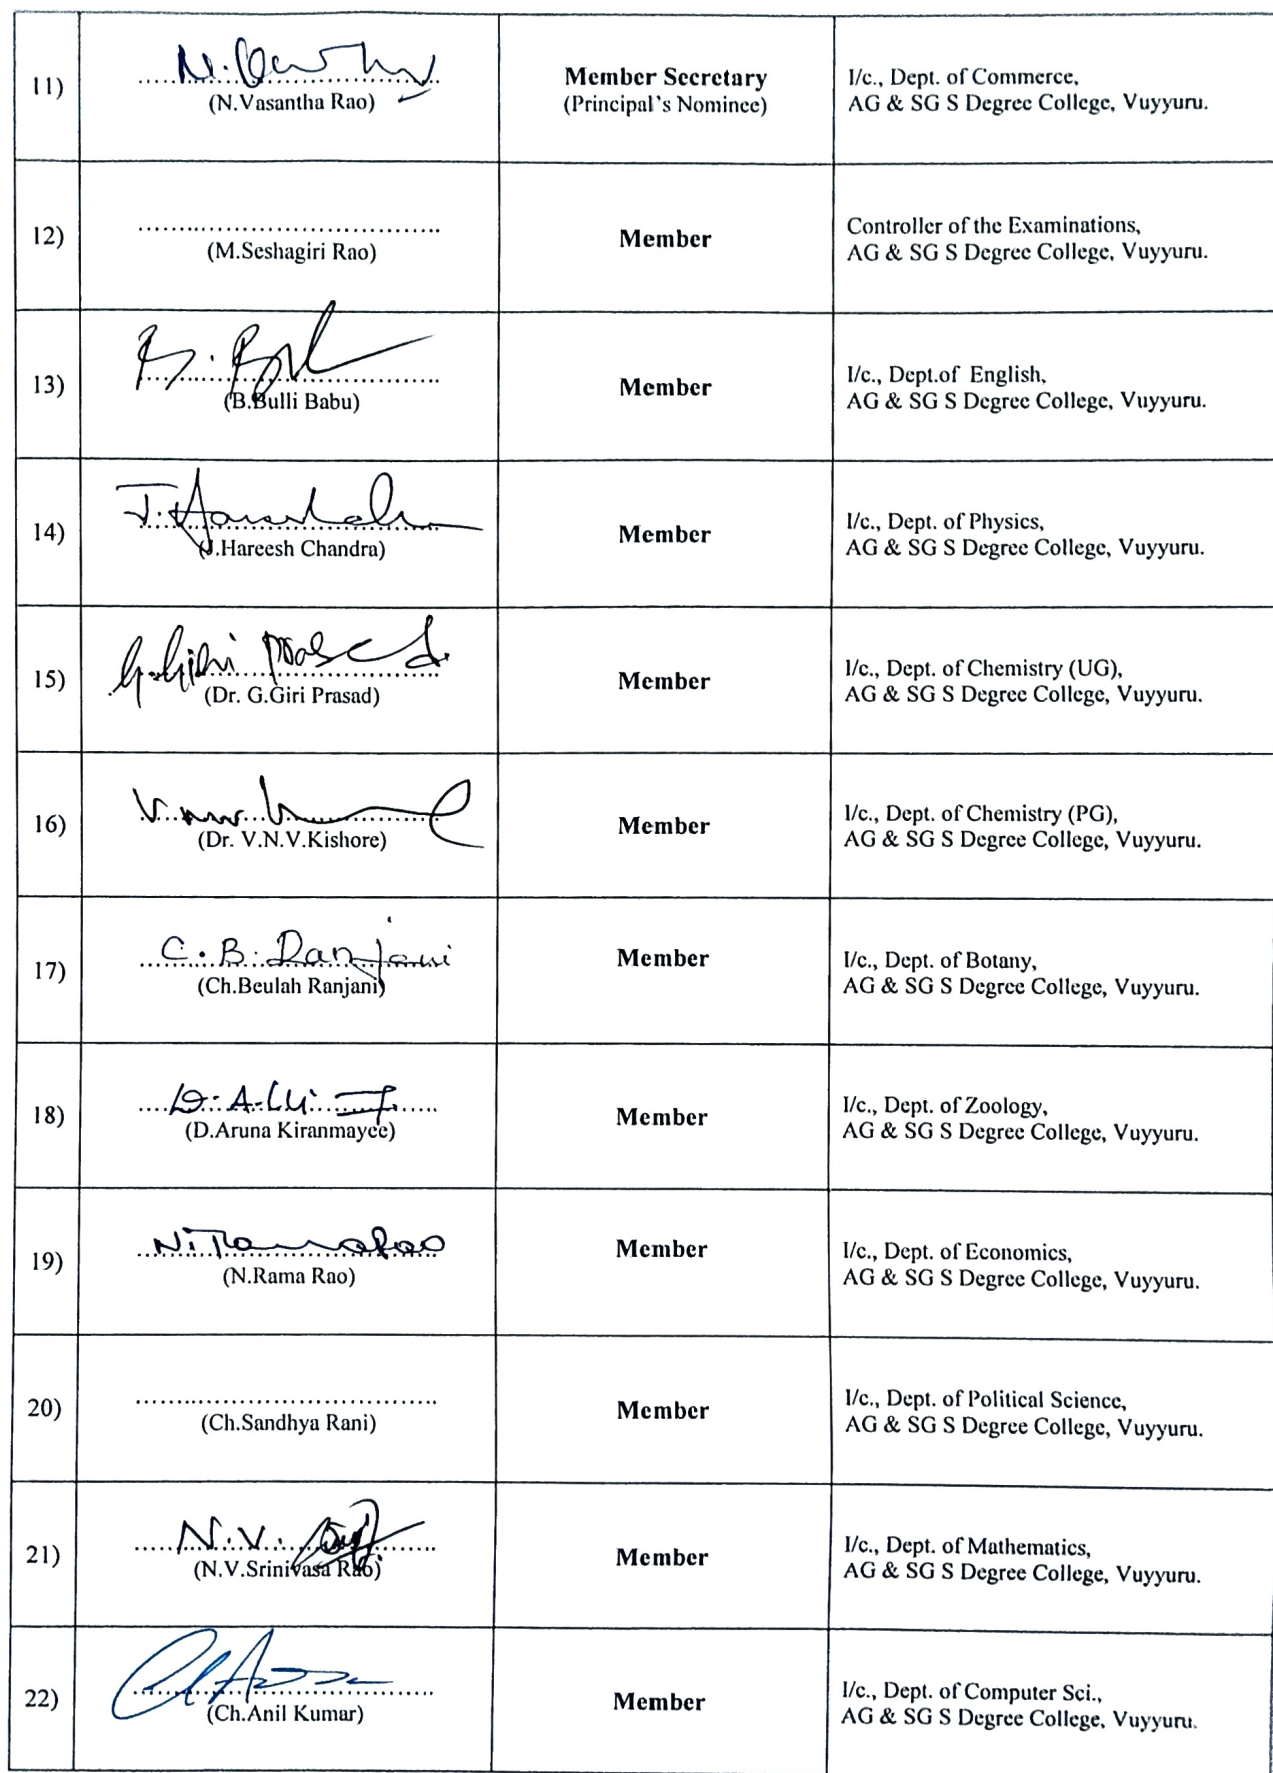 11)
N.
(N.Vasantha Rao)
Member Secretary
(Principal's Nominee)
I/c., Dept. of Commerce,
AG & SG S Degree College, Vuyyuru.
12)
(M.Seshagiri Rao)
Member
Controller of the Examinations,
AG & SG S Degree College, Vuyyuru.
13)
B.
(B.Bulli Babu)
Member
I/c., Dept.of English,
AG & SG S Degree College, Vuyyuru.
14)
J.
(J.Hareesh Chandra)
Member
I/c., Dept. of Physics,
AG & SG S Degree College, Vuyyuru.
15)
G.Giri Prasad
(Dr. G.Giri Prasad)
Member
I/c., Dept. of Chemistry (UG),
AG & SG S Degree College, Vuyyuru.
16)
(Dr. V.N.V.Kishore)
Member
I/c., Dept. of Chemistry (PG),
AG & SG S Degree College, Vuyyuru.
17)
C.B.Ranjani
(Ch.Beulah Ranjani)
Member
I/c., Dept. of Botany,
AG & SG S Degree College, Vuyyuru.
18)
D.A.
(D.Aruna Kiranmayee)
Member
I/c., Dept. of Zoology,
AG & SG S Degree College, Vuyyuru.
19)
N.RamaRao
(N.Rama Rao)
Member
I/c., Dept. of Economics,
AG & SG S Degree College, Vuyyuru.
20)
(Ch.Sandhya Rani)
Member
I/c., Dept. of Political Science,
AG & SG S Degree College, Vuyyuru.
21)
N.V.
(N.V.Srinivasa Rao)
Member
I/c., Dept. of Mathematics,
AG & SG S Degree College, Vuyyuru.
22)
(Ch.Anil Kumar)
Member
I/c., Dept. of Computer Sci.,
AG & SG S Degree College, Vuyyuru.